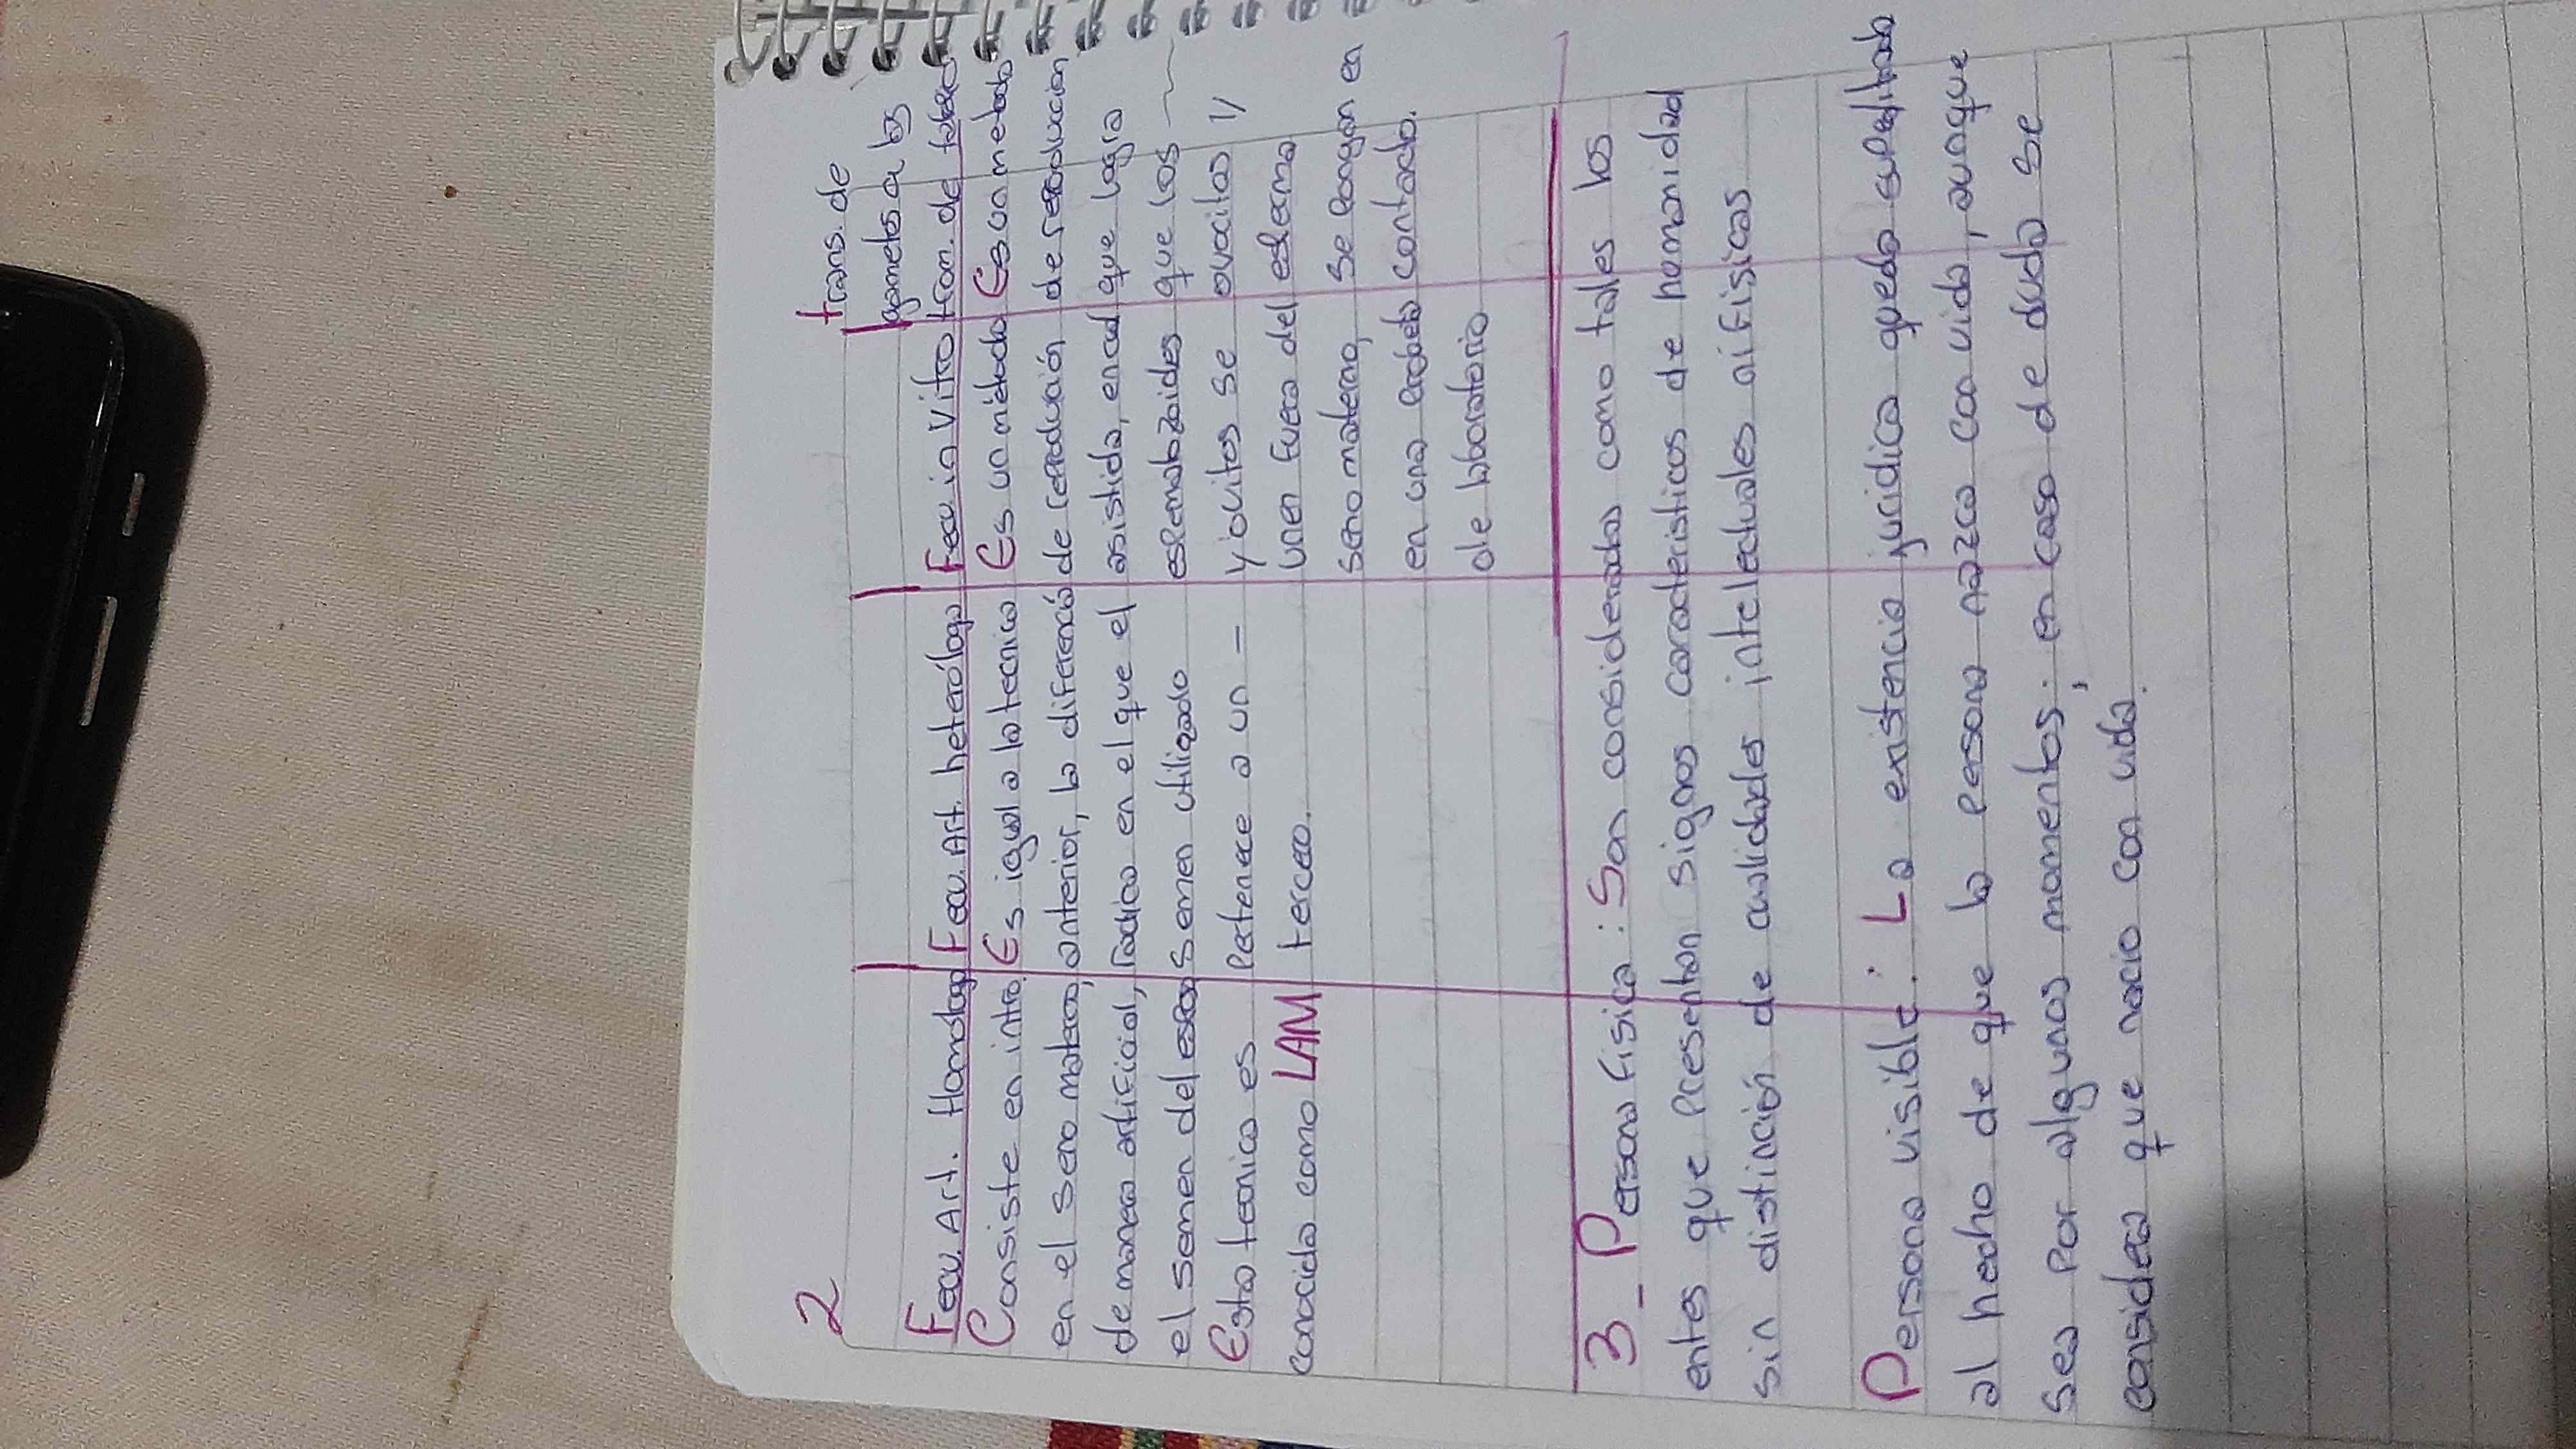 2
trans. de
gametos a las
Fecu. Art. Homologa Fecu. Art. heteróloga Fecu in Vitro tran. de
Consiste en intro. Es igual a la tecnica Es un método Es un metodo
en el seno materno, anterior, la diferencia de reproducción de reproduccion
de manera artificial, radica en el que el asistida, en cual que logra
el semen del esposo semen utilizado espermatozoides que los
Esta tecnica es pertenece a un - y ovitos se ovocitos y
conocida como LAM tercero. unen fuera del esperma
seno materno, se pongan en
en una probeta contacto.
de laboratorio
3_ Persona fisica: Son considerados como tales los
entes que presentan signos caracteristicos de homanidad
sin distinción de cualidades intelectuales ni fisicas
Persona visible: La existencia juridica queda supeditada
al hecho de que la persona nazca con vida, aunque
sea por algunos momentos; en caso de duda se
considera que nacio con vida.